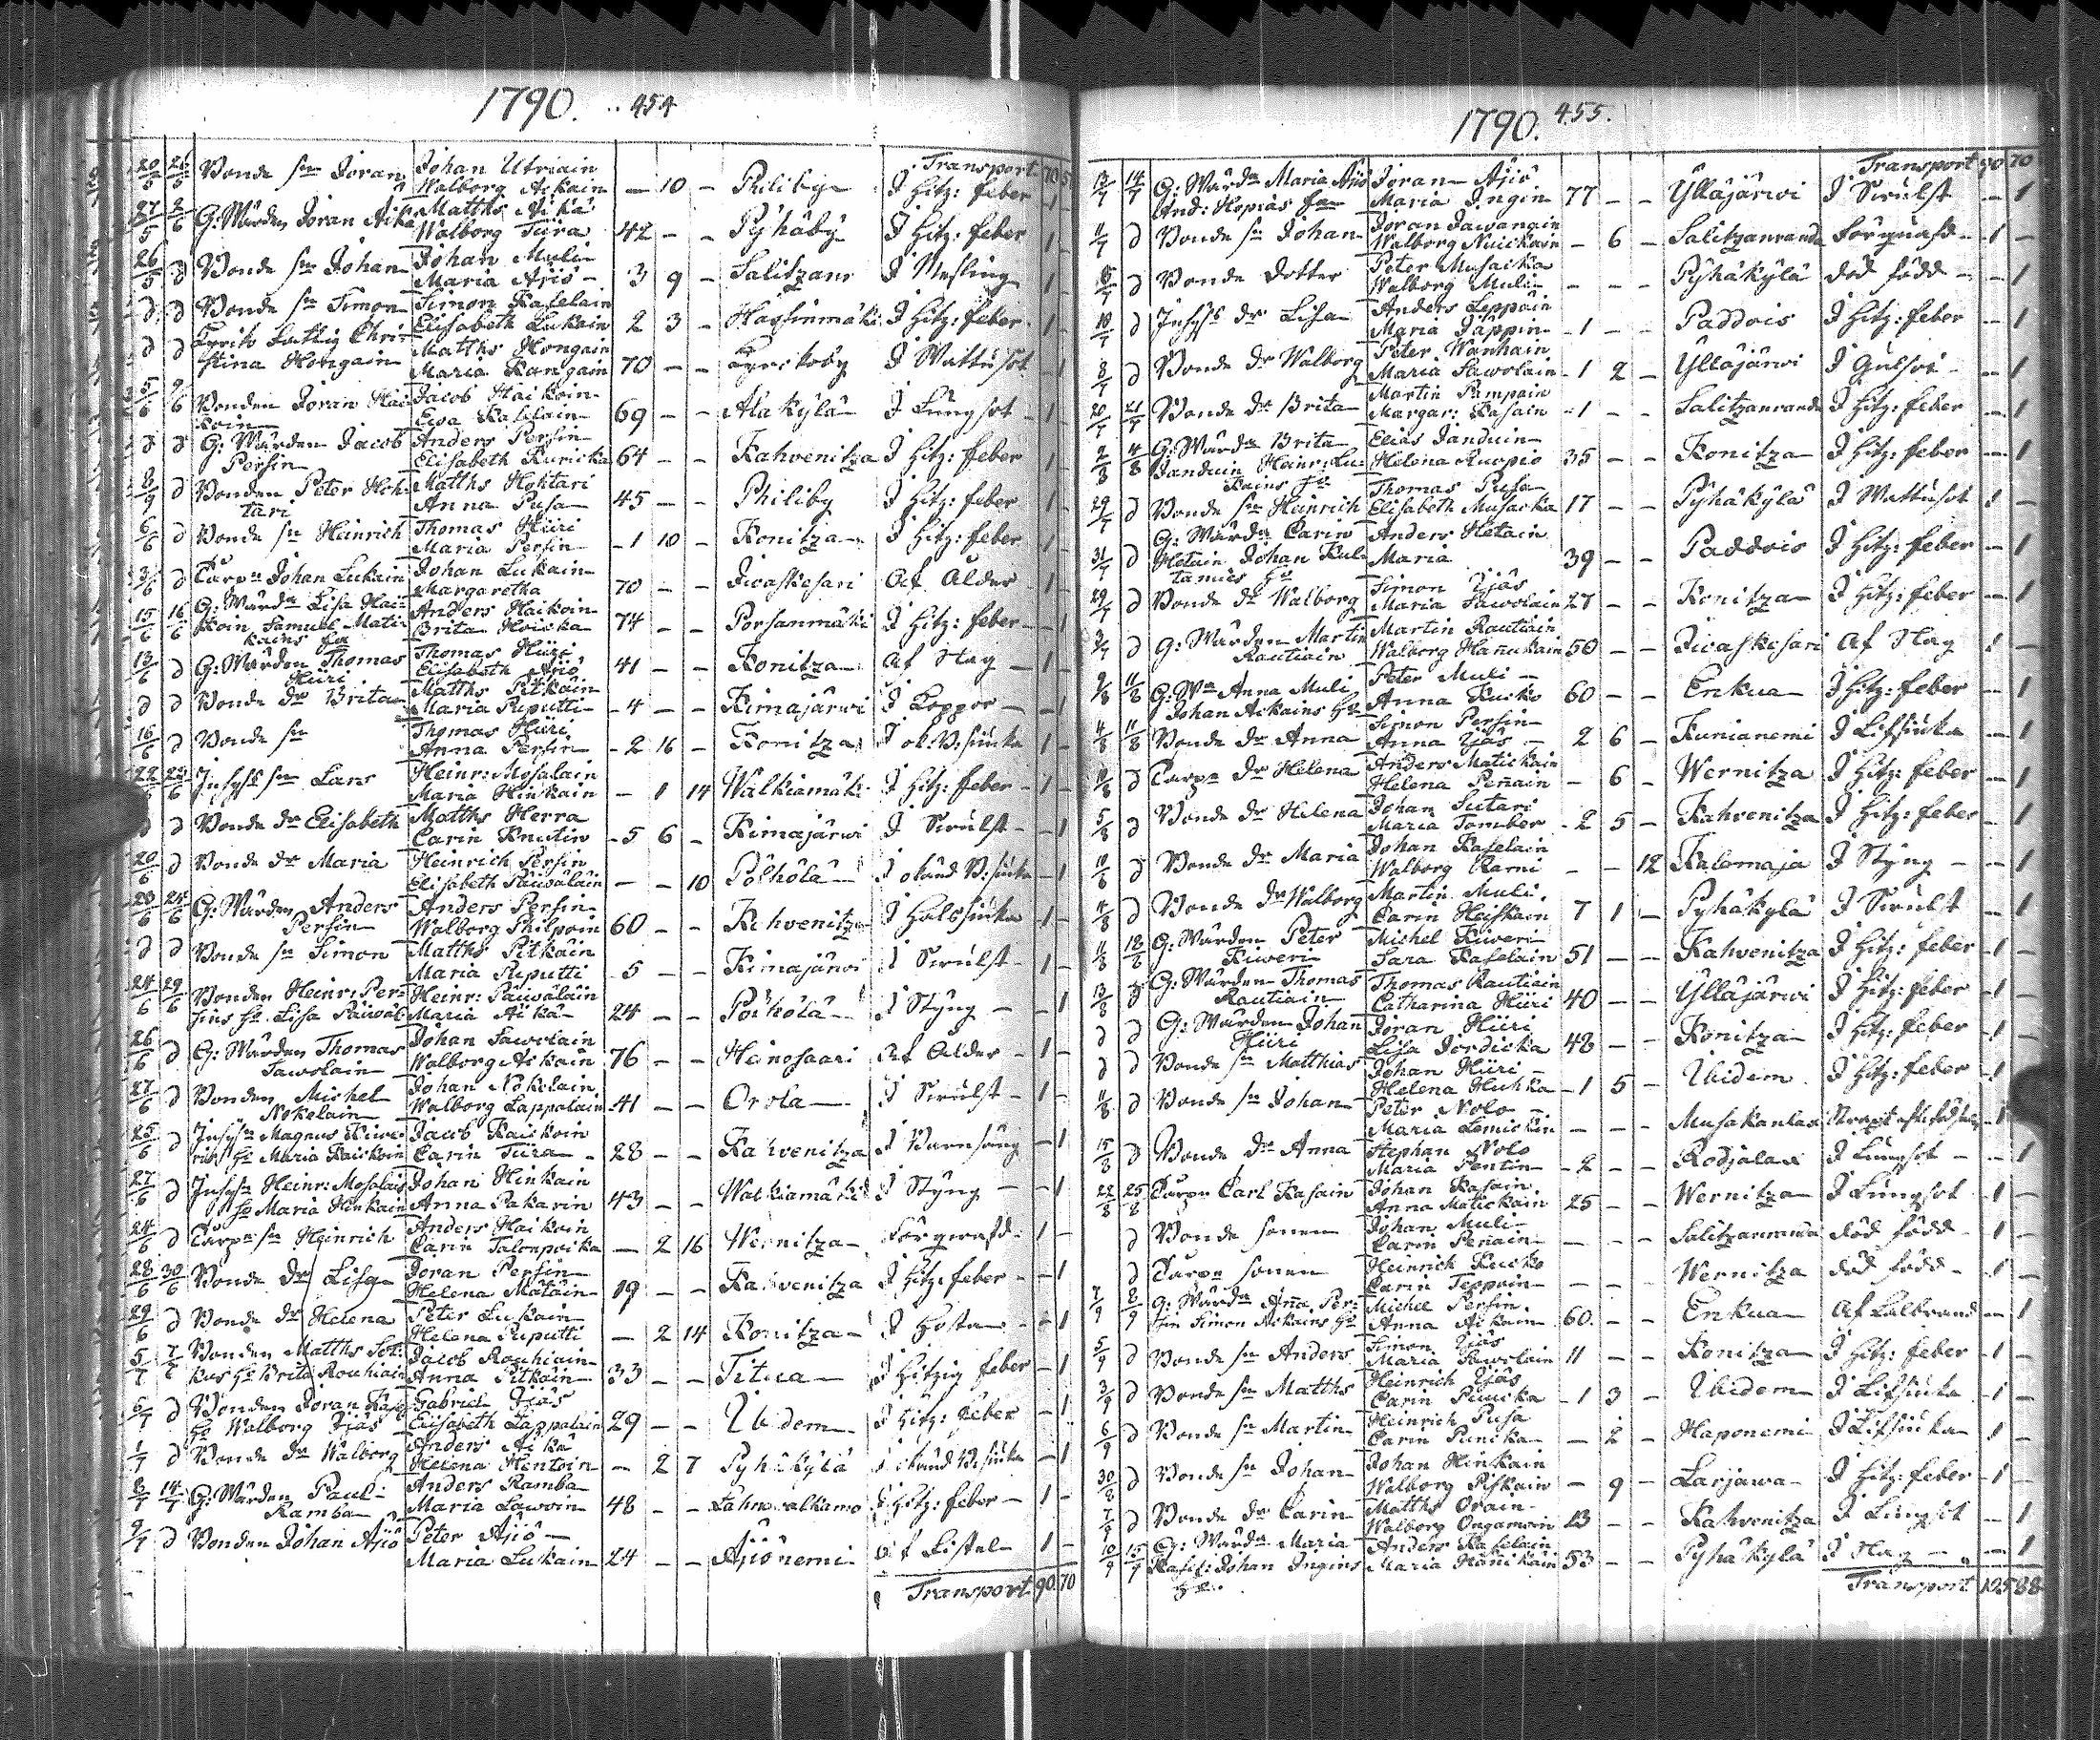 1790. 454
Transport 70 5
20/5 25/5 Bonde sn Joran Johan Utriain Walborg Aikain – 10 – Philiby I hitz: feber 1
27/5 2/6 G: Wärden Joran Aika Matths Aikä Walborg Tiira 42 – – Pyhäby I hitz: feber 1 –
26/5 d Bonde sn Johan Johan Muli Maria Äjiö 3 9 – Salitzanr I Mesling 1 –
d d Bonde sn Simon Simon Kaselain Elisabeth Lukain 2 3 – Hassinmäki I hitz: feber 1 –
d d Kyrko fattig Chri- Matths Hongain
stina Hongain Maria Kangain 70 – – Kyrckoby I Wattusot – 1
5/6 6/6 Bonden Joran Hai- Jacob Haikoin
koin Ewa Kaselain 69 – – Alakylä I Lungsot 1 –
d d G: Wärden Jacob Anders Persin
Persin Elisabeth Kuricka 64 – – Kahvenitza I hitz: feber 1 –
d Bonden Peter Hok- Matths Hoktari
tari Anna Pusa 45 – – Philiby I hitz: feber 1 –
6/6 d Bonde sn Heinrich Thomas Hiiri Maria Persin – 1 10 – Konitza I hitz: feber 1 –
3/6 d Torpn Johan Lukain Johan Lukain Margaretha 70 – – Jwaskesari Af Ålder 1 –
15/6 16/6 G: Wärdn Lisa Hai- Anders Haikoin
koin Samuel Mati- Brita Hoicka 74 – – Porsanmäki I hitz: feber – 1
kains
13/6 d G: Wärden Thomas Thomas Hiiri
Hiiri Elisabeth Äjiö 41 – – Konitza af Hag 1 –
d d Bonde dr Brita Matths Pitkäin Maria Reputti – 4 – – Kimajärwi I Koppor – 1
16/6 d Bonde sn Thomas Hiiri Anna Persin – 2 16 – Konitza I ok: B: siuka 1 –
22/6 23/6 Inhys sn Lars Heinr: Mosalain Maria Hinkain – 1 14 Walkiamäki I hitz: feber 1 –
d Bonde dr Elisabeth Matths Herra Carin Knutin 5 6 – Kimajärwi I Swulst – 1
20/6 d Bonde dr Maria Heinrich Persin Elisabeth Päiwäläin – – 10 Pölhölä I okänd B: siuka – 1
23/6 24/6 G: Wärden Anders Anders Persin
Persin Walborg Philpoin 60 – – Kahvenitza I Halssiuka 1 –
d d Bonde sn Simon Matths Pitkäin Maria Reputti 5 – – Kimajärwi I Swulst 1 –
24/6 29/6 Bonden Heinr: Per- Heinr: Päiwäläin
sins ho Lisa Päiwäl Maria Aikä 24 – – Pölhölä I Styng – 1
26/6 d G: Wärden Thomas Johan Sawolain
Sawolain Walborg Aikain 76 – – Heinosaari Af Ålder 1 –
27/6 d Bonden Michel Johan Nokelain
Nokelain Walborg Lappalain 41 – – Orola I Swulst 1 –
25/6 d Inhysn Magnus Kiwe- Jacob Kaickoin
rins ho Maria Kaickoin Carin Tiira 28 – – Kahvenitza I Barnsäng – 1
27/6 d Inhysn Heinr: Mosalain Johan Hinkain
ho Maria Hinkain Anna Pakarin 43 – – Walkiamäki I Styng – 1
24/6 d Torpn sn Heinrich Anders Haikain Carin Talonpoika – 2 16 Wernitza Förqwafd 1 –
28/6 30/6 Bonde dr Lisa Joran Persin Helena Mätäin 19 – – Kahvenitza I hitz: feber – 1
29/6 d Bonde dr Helena Peter Lukain Helena Reputti – 2 14 Konitza I Hosta – 1
5/7 7/7 Bonden Matths Jacob Rouhiain
ho Brita Rouhiain Anna Pitkäin 33 – – Titua I Hitzig feber – 1
6/7 d Bonden Joran Gabriel Jjäs
ho Walborg Jjäs Elisabeth Lappalain 29 – – Ibidem I hitz: feber – 1
1/7 d Bonde dr Walborg Anders Aikä Helena Hentoin – 2 7 Pyhäkylä I okänd B: siuka – 1
8/7 14/7 G: Wärden Paul Anders Ramba
Ramba Maria Lawoin 48 – – Lahnwalkamo I hitz: feber 1 –
9/7 d Bonden Johan Äjiö Peter Äjiö Maria Lukain 24 – – Äjiönemi af Fistel 1 –
Transport 90 70
1790. 455.
Transport 90 70
13/7 14/7 G: Wärdn Maria Äjiö Joran Äjiö
And: Hopias Maria Ingin 77 – – Ylläjärwi I Swulst – 1
11/7 d Bonde sn Johan Joran Jawanain Walborg Nuickain – 6 – Salitzanranda Förqwafd 1 –
15/7 d Bonde dotter Peter Musacka Walborg Muli – – – Pyhäkylä död född – 1
10/7 d Inhys dr Lisa Anders Leppäin Maria Jäppin 1 – – Paddois I hitz: feber – 1
8/7 d Bonde dr Walborg Peter Wanhain Maria Sawolain 1 2 – Ylläjärwi I Gulsot – 1
20/7 21/7 Bonde dr Brita Martin Pampain Margar: Kasain 1 – – Salitzanranda I hitz: feber – 1
2/8 4/8 G: Wärdn Brita Elias Janduin
Janduin Heinr: Lu- Helena Kuopio 35 – – Konitza I hitz: feber – 1
kains ho
29/7 d Bonde sn Heinrich Thomas Pusa Elisabeth Musacka 17 – – Pyhäkylä I Wattusot 1 –
31/7 d G: Wärdn Carin Anders Hetäin
Hetäin Johan Kul- Maria 39 – – Paddois I hitz: feber – 1
tamies ho
29/7 d Bonde dr Walborg Simon Jjäs Maria Sawolain 27 – – Konitza I hitz: feber – 1
3/7 d G: Wärden Martin Martin Rautiain
Rautiain Walborg Hanukain 50 – – Jwaskesari Af Hag 1 –
9/8 11/8 G: Wn Anna Muli Peter Muli
Johan Aikains ho Anna Kucko 60 – – Enkua I hitz: feber – 1
4/8 11/8 Bonde dr Anna Simon Persin Anna Jjäs 2 6 – Kunianemi I Lifsiuka – 1
10/8 d Torpn dr Helena Anders Matickain Helena Penäin – 6 – Wernitza I hitz: feber – 1
5/8 d Bonde dr Helena Johan Sutari Maria Tamber 2 5 – Kahvenitza I hitz: feber – 1
10/8 d Bonde dr Maria Johan Kaselain Walborg Karni – – 12 Kalamaja I Styng – 1
4/8 d Bonde dr Walborg Martin Muli Carin Heiskain 7 1 – Pyhäkylä I Swulst – 1
11/8 12/8 G: Wärden Peter Michel Kiweri
Kiweri Sara Kaselain 51 – – Kahvenitza I hitz: feber 1 –
13/8 d G: Wärden Thomas Thomas Rautiain
Rautiain Catharina Hiiri 40 – – Ylläjärwi I hitz: feber 1 –
d d G: Wärden Johan Joran Hiiri
Hiiri Lisa Jordicka 48 – – Konitza I hitz: feber 1 –
d d Bonde sn Matthias Johan Hiiri Helena Huhka 1 5 – Ibidem I hitz: feber 1
11/8 d Bonde sn Johan Peter Nolo Maria Lemickin – – – Musakanlax Strax eft: födslen 1
15/8 d Bonde dr Anna Stephan Nolo Maria Pentin 2 – – Rodjalax I Lungsot – 1
22/8 25/8 Torpn Carl Kasain Johan Kasain Anna Matickain 25 – – Wernitza I Lungsot 1 –
d Bonde sonen Johan Muli Carin Penäin – – – Salitzanranda död född 1 –
d Torpn sonen Heinrich Kucko Carin Teppoin – – – Wernitza död född 1 –
7/9 8/9 G: Wärdn Anna Per- Michel Persin
sin Simon Aikains ho Anna Aikain 60 – – Enkua Af Kalbrand – 1
5/9 d Bonde sn Anders Simon Jjäs Maria Sawolain 11 – – Konitza I hitz: feber 1 –
3/9 d Bonde sn Matths Heinrich Jjäs Carin Punicka 1 3 – Ibidem I Lifsiuka 1 –
6/9 d Bonde sn Martin Heinrich Pusa Carin Punika – 2 – Haponemi I Lifsiuka 1 –
30/8 d Bonde sn Johan Johan Hinkain Walborg Piskain – 9 – Larjawa I hitz: feber 1 –
7/9 d Bonde dr Carin Matths Orain Walborg Ongamoin 13 – – Kahvenitza I Lungsot – 1
10/9 15/9 G: Wärdn Maria Anders Kaselain
Kasel: Johan Ingins Maria Hänikäin 53 – – Pyhäkylä I Hag – 1
ho
Transport 105 88